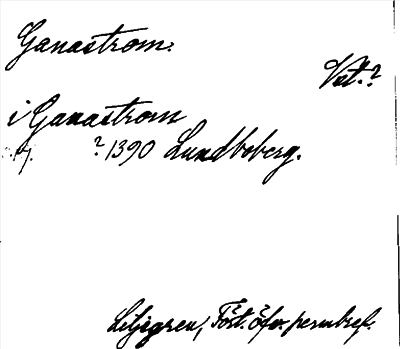 Ganastrom.
Vst.?
i Ganastrom
?1390 Lundboberg.
Liljegren, Fört. öfv. permbref.